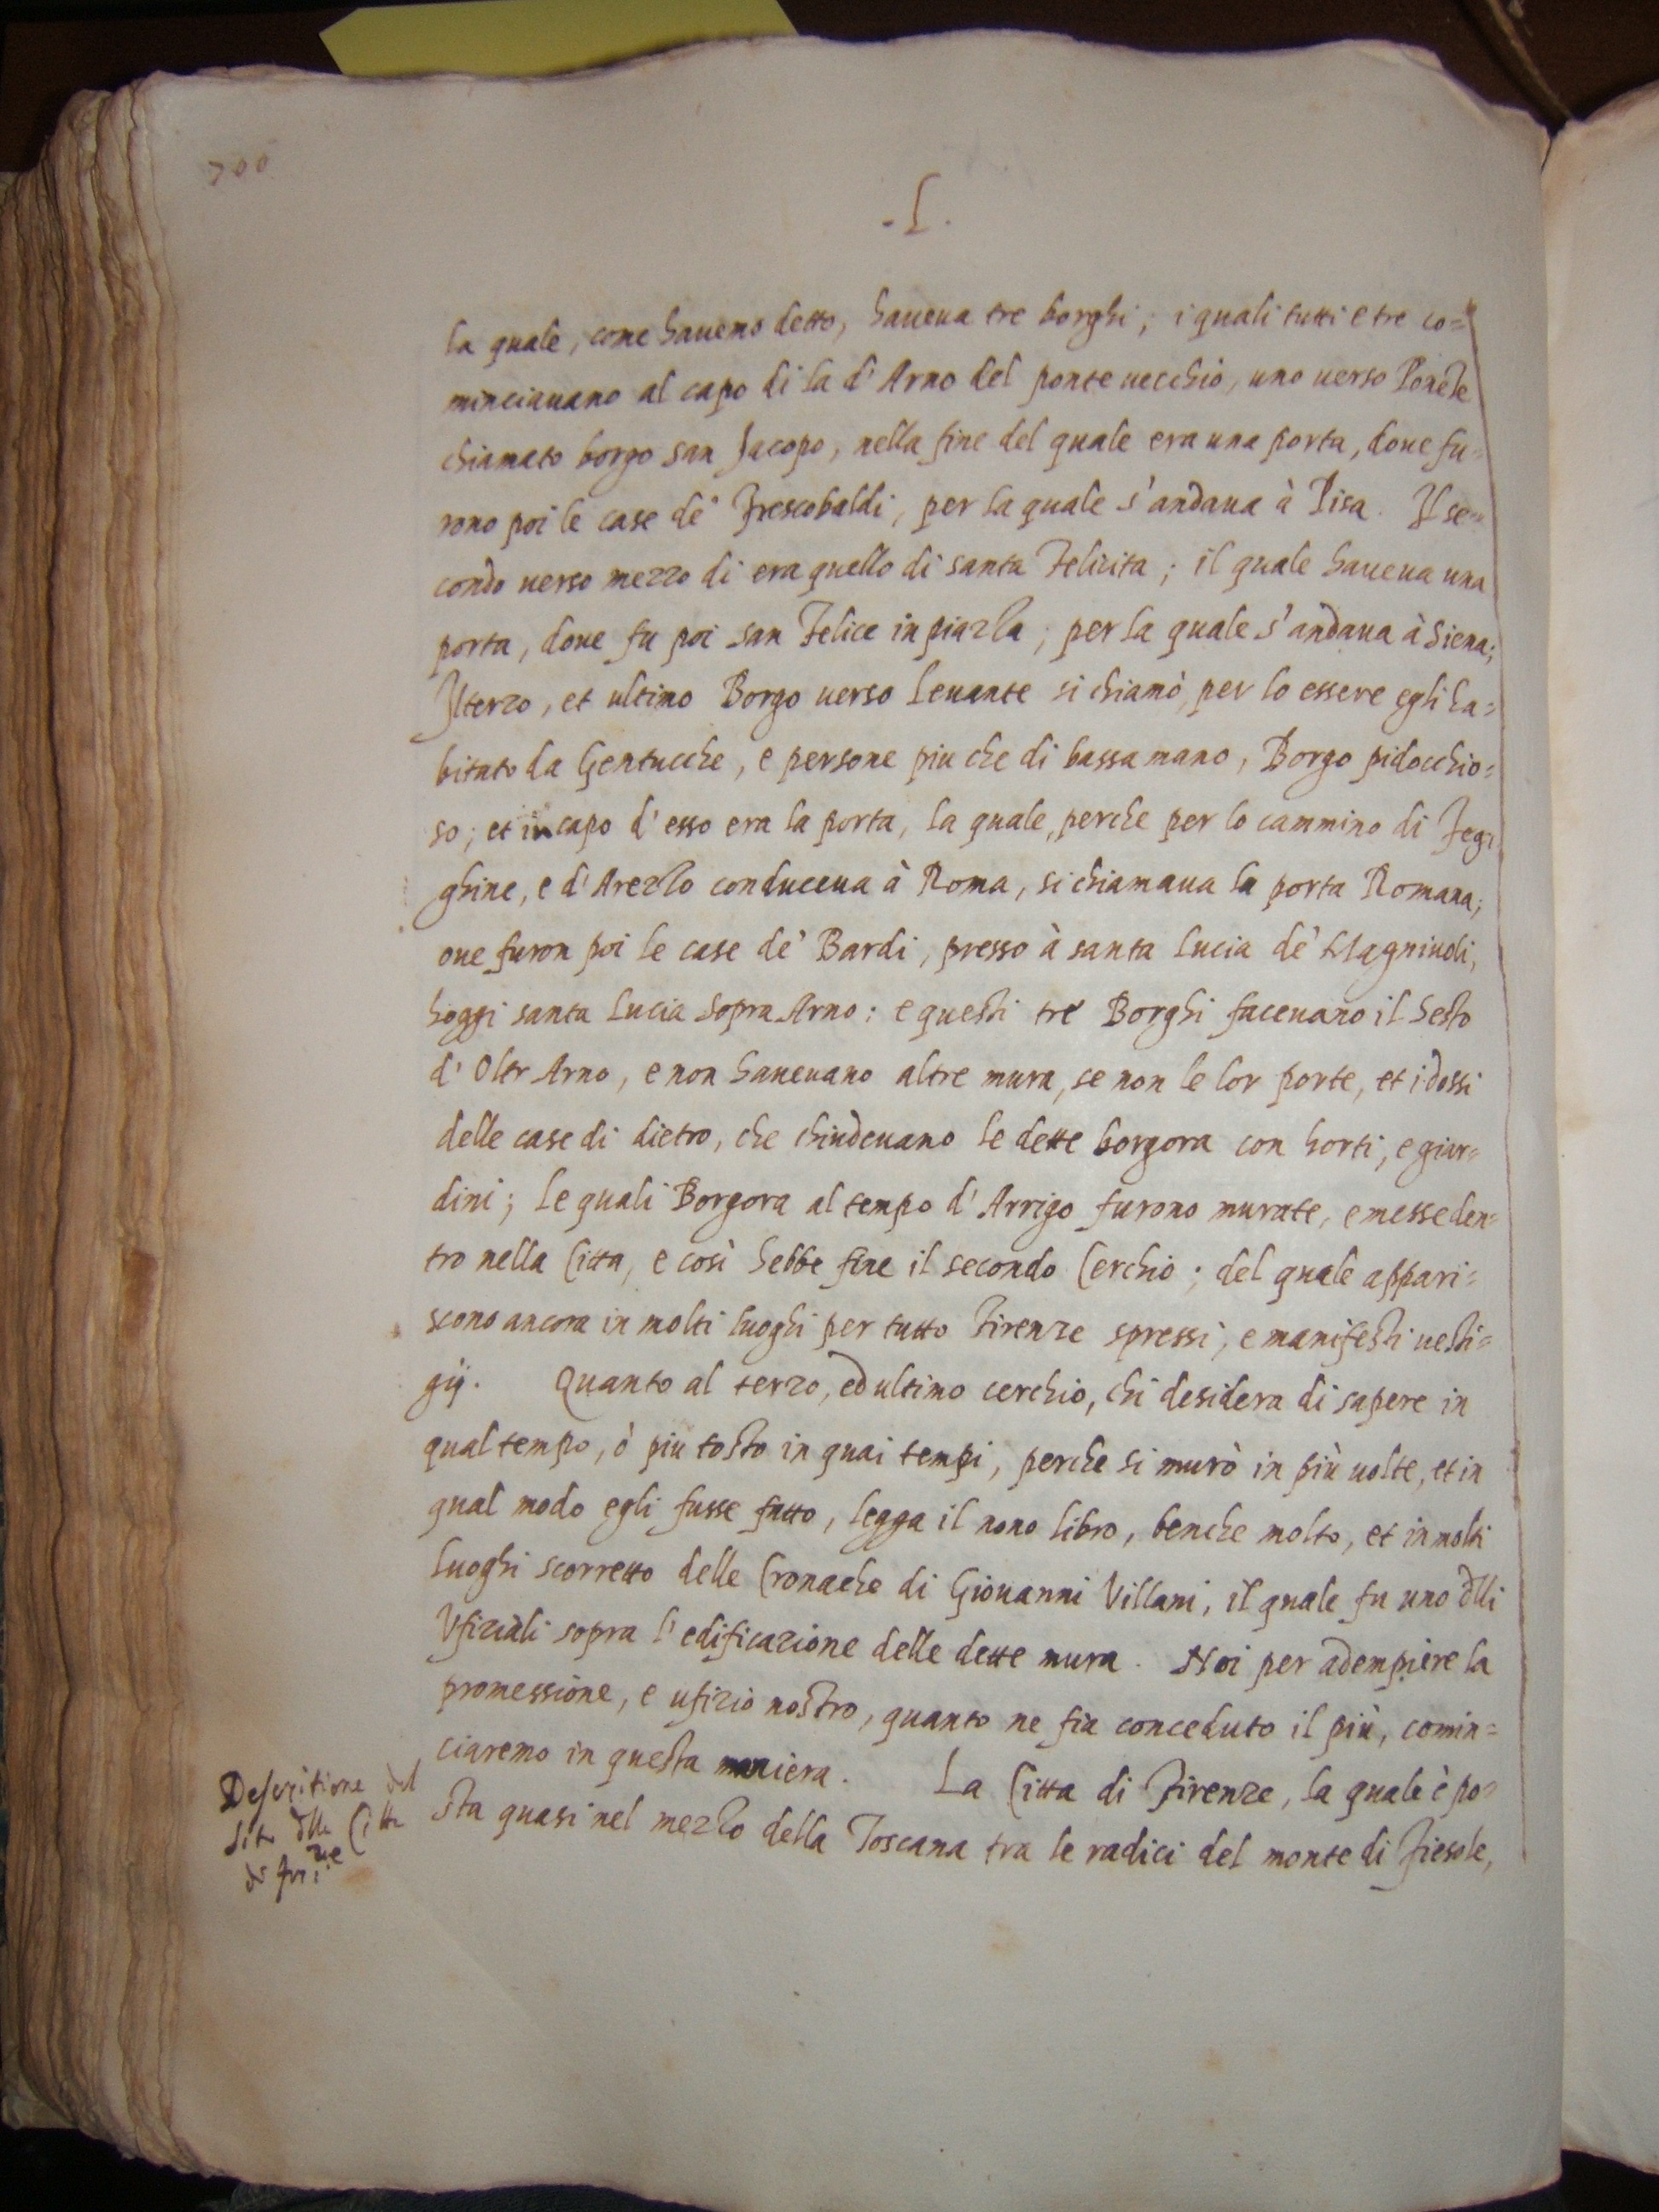 700
.L.
la quale, come hauemo detto, haueua tre borghi; i quali tutti e tre co=
minciauano al capo di la d'Arno del ponte uecchio, uno uerso Ponẽte
chiamato borgo san Jacopo, nella fine del quale era una porta, doue fu=
rono poi le case de' Frescobaldi, per la quale s'andaua à Pisa. Il se=
condo uerso mezzo di era quello di santa Felicita; il quale haueua una
porta, doue fu poi san Felice in piazza; per la quale s'andaua à Siena;
Il terzo, et ultimo Borgo uerso leuante si chiamò, per lo essere egli ha=
bitato da Gentucche, e persone piu che di bassa mano, Borgo pidocchio=
so; et in capo d'esso era la porta, la quale, perche per lo cammino di Feg=
ghine, e d'Arezzo conduceua à Roma, si chiamaua la porta Romana;
oue furon poi le case de' Bardi, presso à santa Lucia de' Magniuoli,
hoggi santa Lucia sopra Arno: e questi tre Borghi faceuano il Sesto
d'Oltr Arno, e non haueuano altre mura, se non le lor porte, et i dossi
delle case di dietro, che chiudeuano le dette borgora con horti, e giar=
dini; le quali Borgora al tempo d'Arrigo furono murate, e messe den=
tro nella Citta, e così hebbe fine il secondo Cerchio; del quale appari=
scono ancora in molti luoghi per tutto Firenze spressi, e manifesti uesti=
gij. Quanto al terzo, ed ultimo cerchio, chi desidera di sapere in
qual tempo, ò piu tosto in quai tempi, perche si murò in più uolte, et in
qual modo egli fusse fatto, legga il nono libro, benche molto, et in molti
luoghi scorretto delle Cronache di Giouanni Villani, il quale fu uno dlli
Vfiziali sopra l'edificazione delle dette mura. Noi per adempiere la
promessione, e ufizio nostro, quanto ne fia conceduto il più, comin=
ciaremo in questa maniera. La Citta di Firenze, la quale è po=
sta quasi nel mezzo della Toscana tra le radici del monte di Fiesole,
Descritione del
sito dlla Citta
di